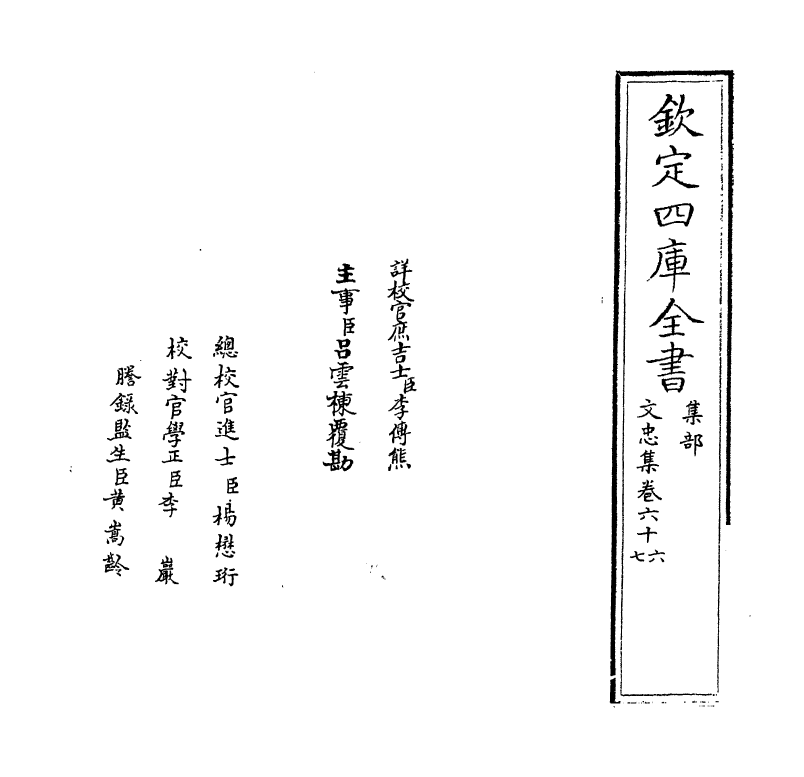 欽定四庫全書
集部
文忠集卷六十六
七
詳校官庶吉士臣李傳熊
主事臣呂雲棟覆勘
總校官進士臣楊懋珩
校對官學正臣李巖
謄錄監生臣黄嵩齡